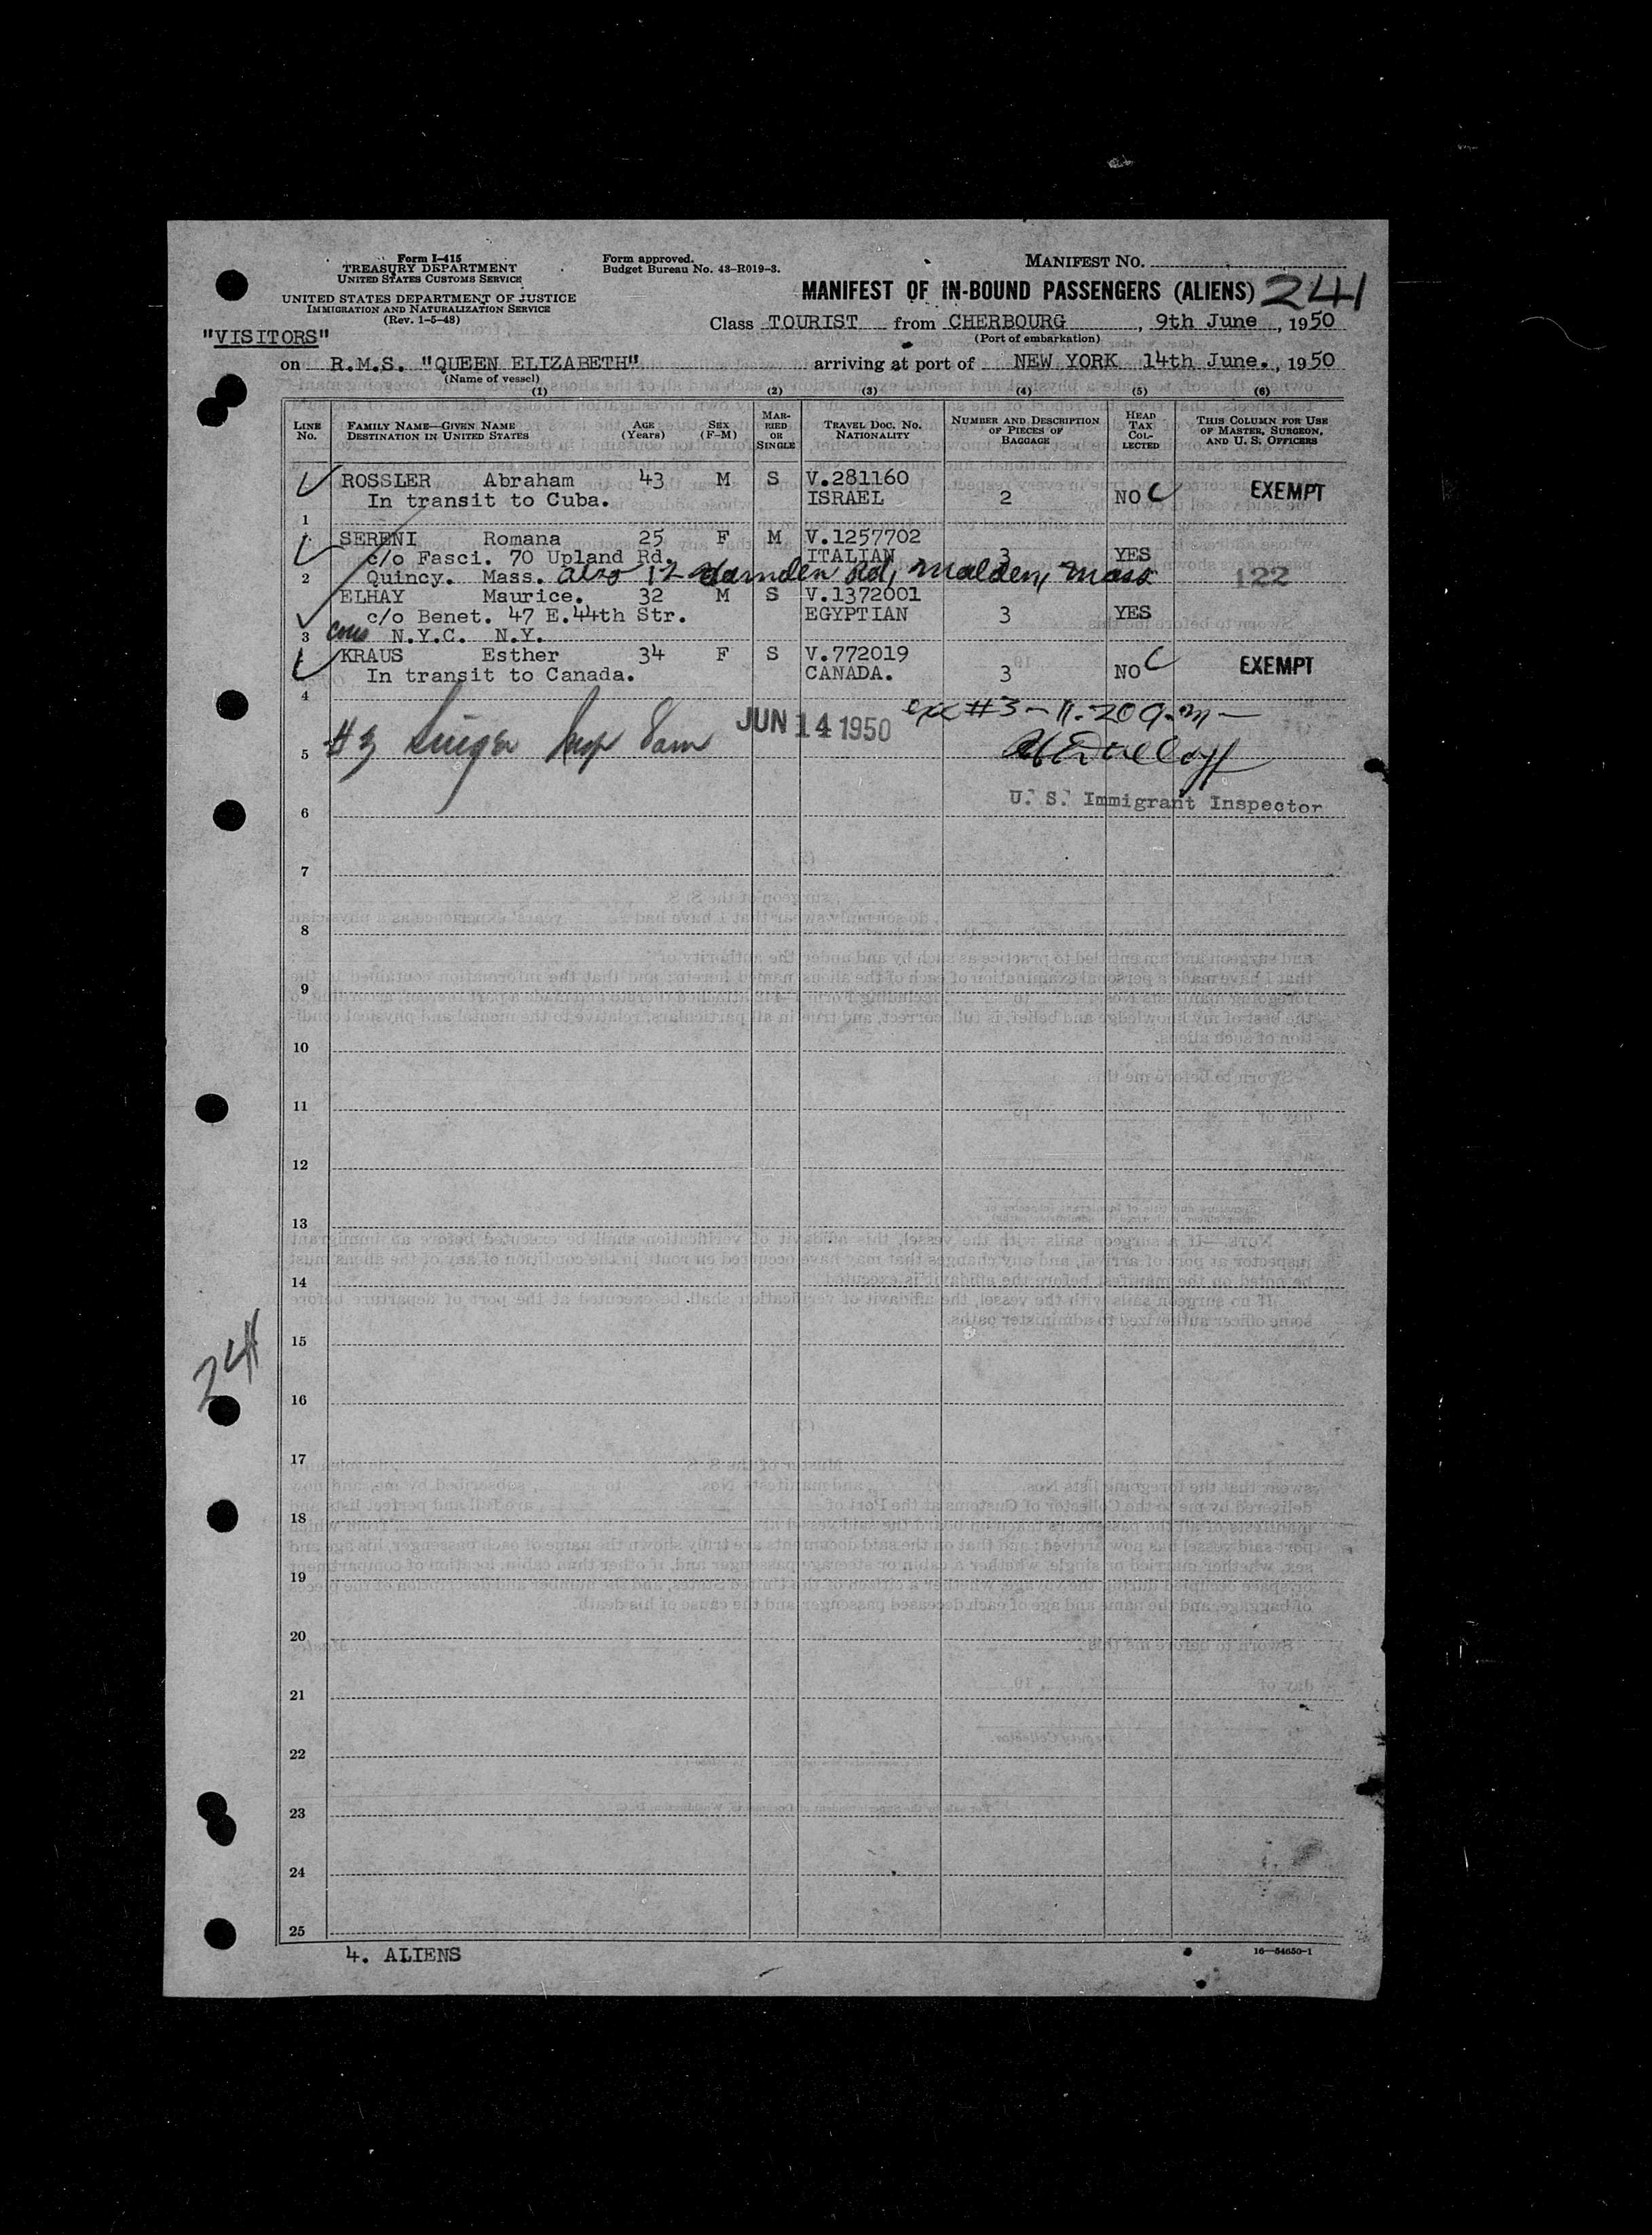 Form I-415
TREASURY DEPARTMENT
UNITED STATES CUSTOMS SERVICE
UNITED STATES DEPARTMENT OF JUSTICE
IMMIGRATION AND NATURALIZATION SERVICE
(Rev. 1-5-48)
Form approved.
Budget Bureau No. 43-R019-3.
MANIFEST NO.
MANIFEST OF IN-BOUND PASSENGERS (ALIENS) 241
"VISITORS"
Class TOURIST from CHERBOURG, 9th June, 1950
(Port of embarkation)
on R.M.S. "QUEEN ELIZABETH" arriving at port of NEW YORK 14th June., 1950
(Name of vessel)
(1) (2) (3) (4) (5) (6)
LINE No. FAMILY NAME—GIVEN NAME DESTINATION IN UNITED STATES AGE (Years) SEX (F-M) MARRIED OR SINGLE TRAVEL DOC. NO. NATIONALITY NUMBER AND DESCRIPTION OF PIECES OF BAGGAGE HEAD TAX COLLECTED THIS COLUMN FOR USE OF MASTER, SURGEON, AND U. S. OFFICERS
ROSSLER Abraham 43 M S V.281160
In transit to Cuba. ISRAEL 2 NO C EXEMPT
1
SERENI Romana 25 F M V.1257702
c/o Fasci. 70 Upland Rd. ITALIAN 3 YES
2 Quincy. Mass. also 12 Hamden Rd, Malden, Mass 122
ELHAY Maurice. 32 M S V.1372001
c/o Benet. 47 E.44th Str. EGYPTIAN 3 YES
3 N.Y.C. N.Y.
KRAUS Esther 34 F S V.772019
In transit to Canada. CANADA. 3 NO C EXEMPT
4
#3 JUN 14 1950 #3 - 11.20 a.m -
5
U. S. Immigrant Inspector
6
7
8
9
10
11
12
13
14
15
241
16
17
18
19
20
21
22
23
24
25
4. ALIENS
16—54650-1